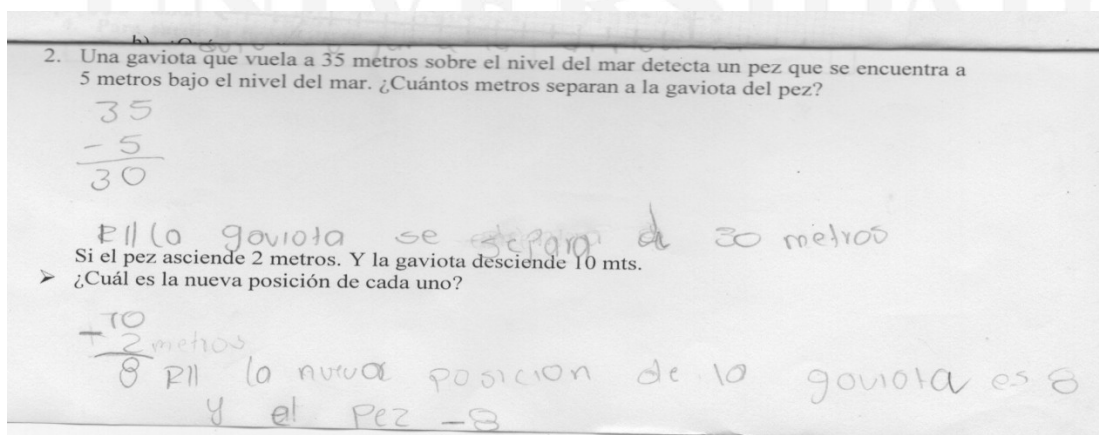 2. Una gaviota que vuela a 35 metros sobre el nivel del mar detecta un pez que se encuentra a
5 metros bajo el nivel del mar. ¿Cuántos metros separan a la gaviota del pez?
35
- 5
30
R// la gaviota se separa de 30 metros
Si el pez asciende 2 metros. Y la gaviota desciende 10 mts.
➤ ¿Cuál es la nueva posición de cada uno?
10
+ 2 metros
8 R// la nueva posicion de la gaviota es 8
y el pez -8